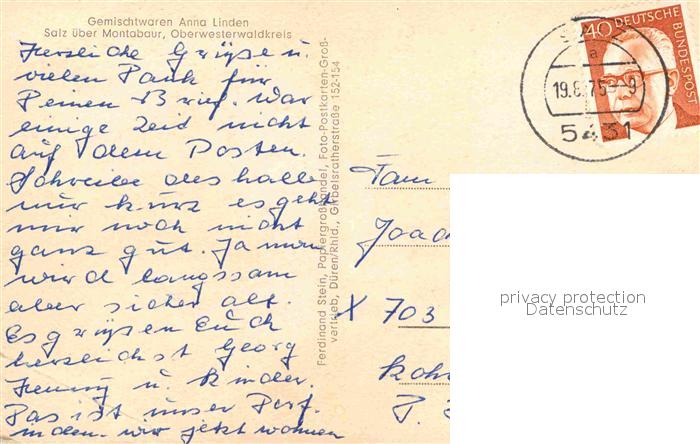 Gemischtwaren Anna Linden
Salz über Montabaur, Oberwesterwaldkreis
Herzliche Grüße u.
vielen Dank für
Deinen Brief. War
einige Zeid nicht
auf dem Posten.
Schreibe deshalb
nur kurz es geht
mir noch nicht
ganz gut. Ja man
wird langssam
aber sicher alt.
Es grüßen Euch
herzlichst Georg
Henny u. Kinder.
Das ist unser Dorf.
indem wir jetzt wohnen
Ferdinand Stein, Papiergroßhandel, Foto-Postkarten-Groß-
vertrieb, Düren/Rhld., Girbelsratherstraße 152-154
40 DEUTSCHE BUNDESPOST
a
19.8.75-9
5431
Fam
Joac
X 703
P.
privacy protection
Datenschutz